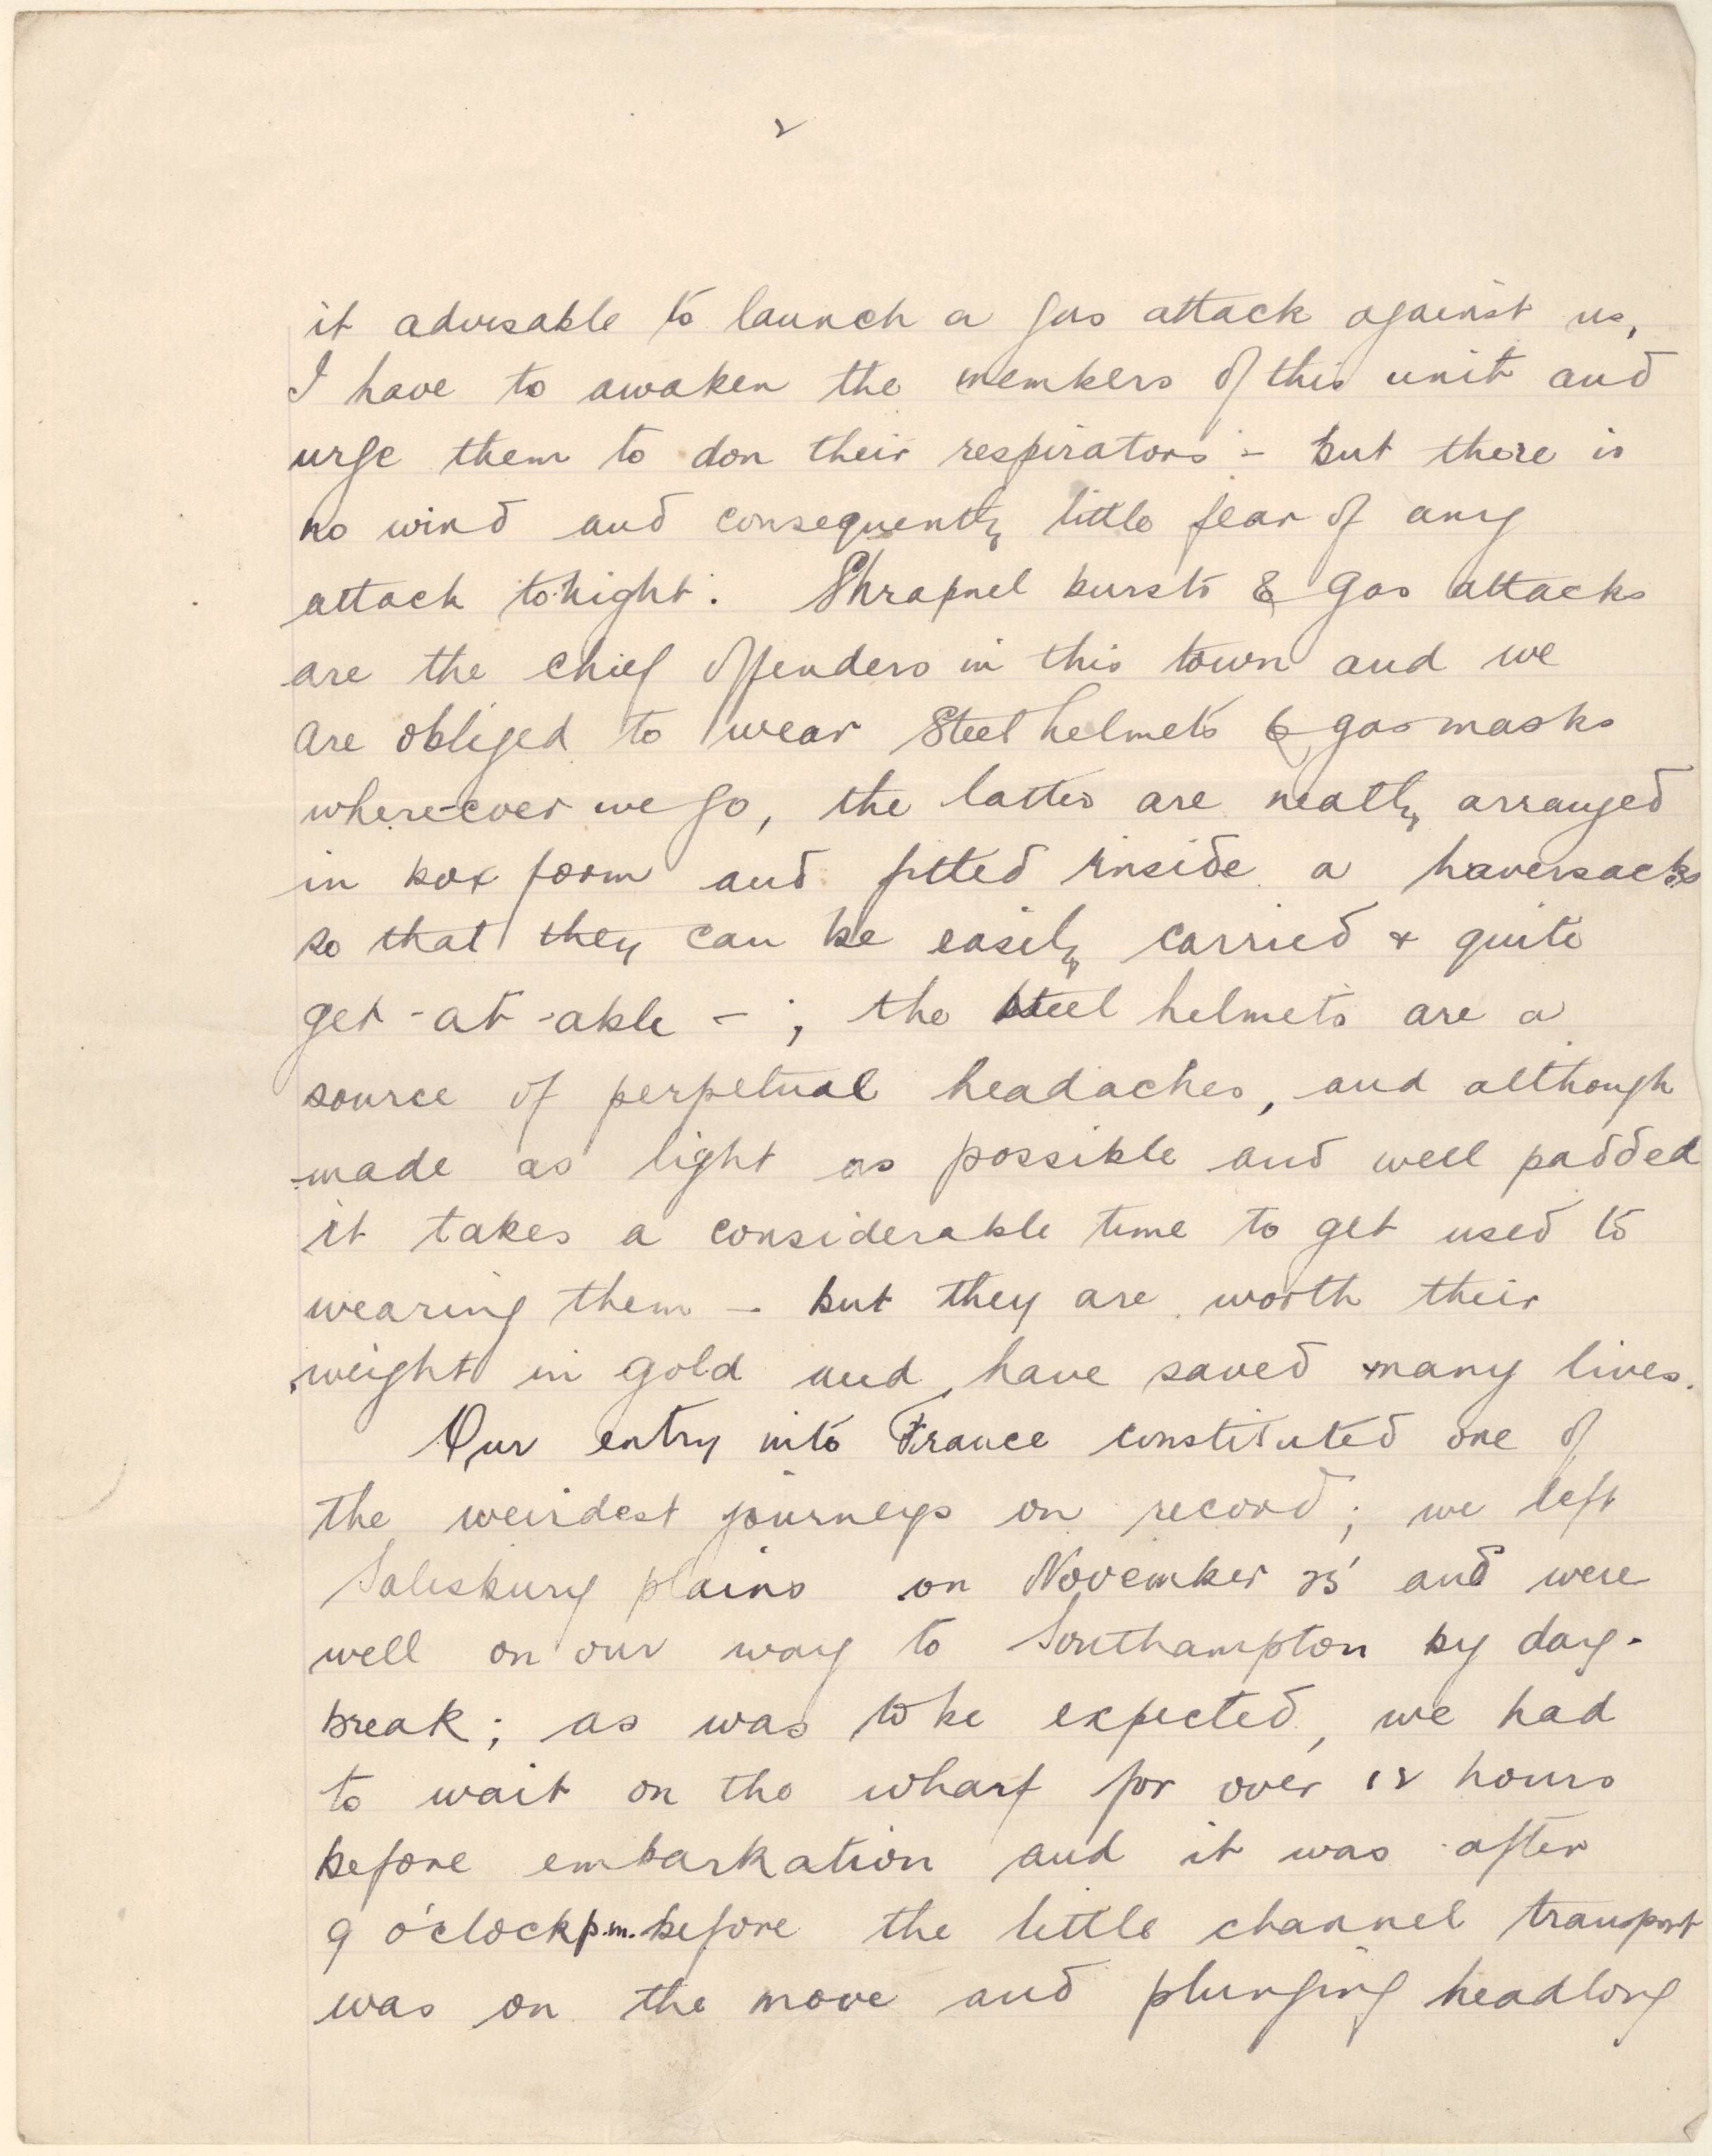 2
it advisable to launch a gas attack against us,
I have to awaken the members of this unit and
urge them to don their respirators - but there is
no wind and consequently little fear of any
attack to-night. Shrapnel bursts & gas attacks
are the chief offenders in this town and we
are obliged to wear steel helmets & gas masks
where-ever we go, the latter are neatly arranged
in box form and fitted inside a haversacks
so that they can be easily carried & quite
get-at-able - ; the steel helmets are a
source of perpetual headaches, and although
made as light as possible and well padded
it takes a considerable time to get used to
wearing them - but they are worth their
weight in gold and have saved many lives.
Our entry into France constituted one of
the weirdest journeys on record; we left
Salisbury plains on November 25 and were
well on our way to Southampton by day-
break; as was to be expected, we had
to wait on the wharf for over 12 hours
before embarkation and it was after
9 o'clock p.m. before the little channel transport
was on the move and plunging headlong